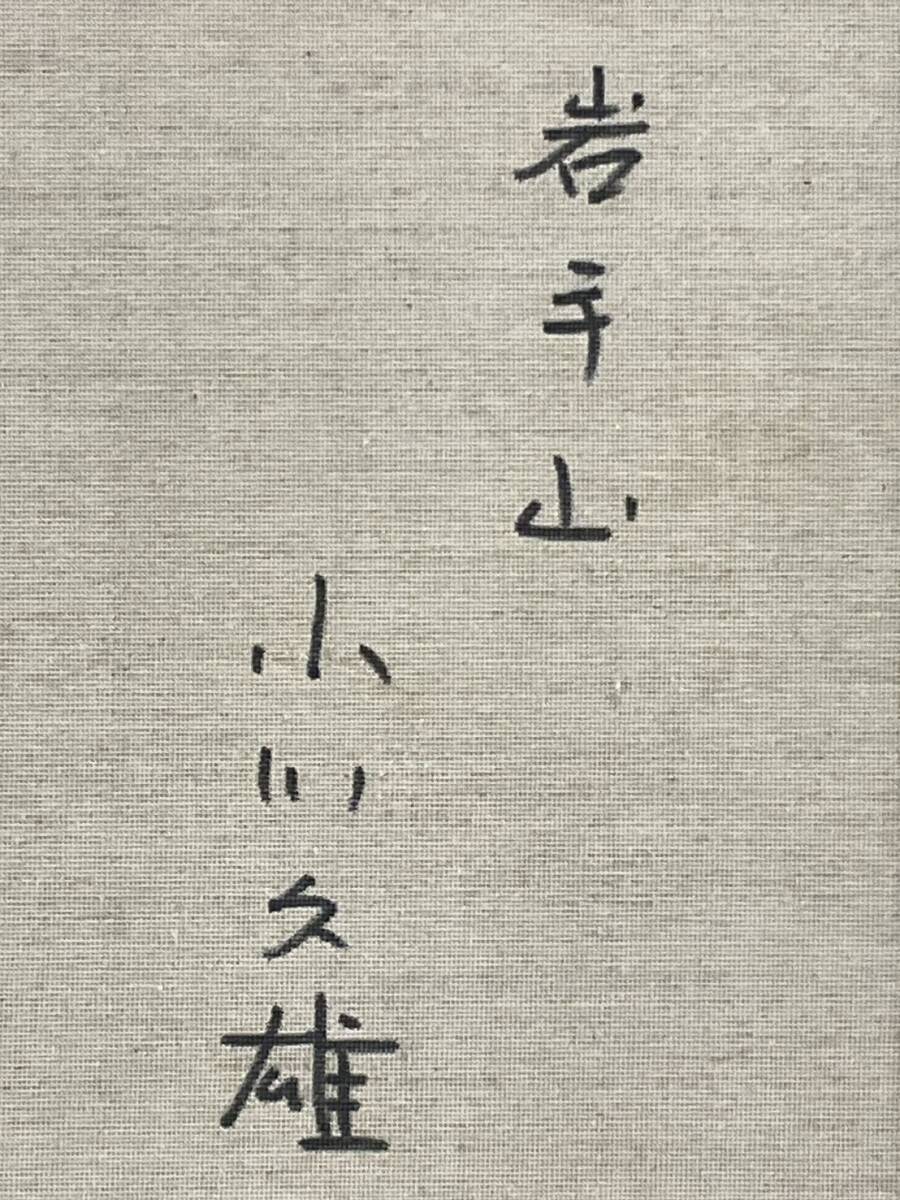 岩手山
小川久雄